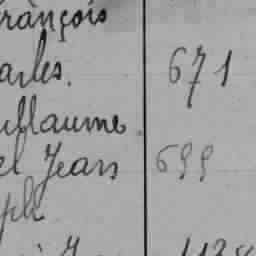 rançois
arles. 671
uillaume.
el Jean 699
ph